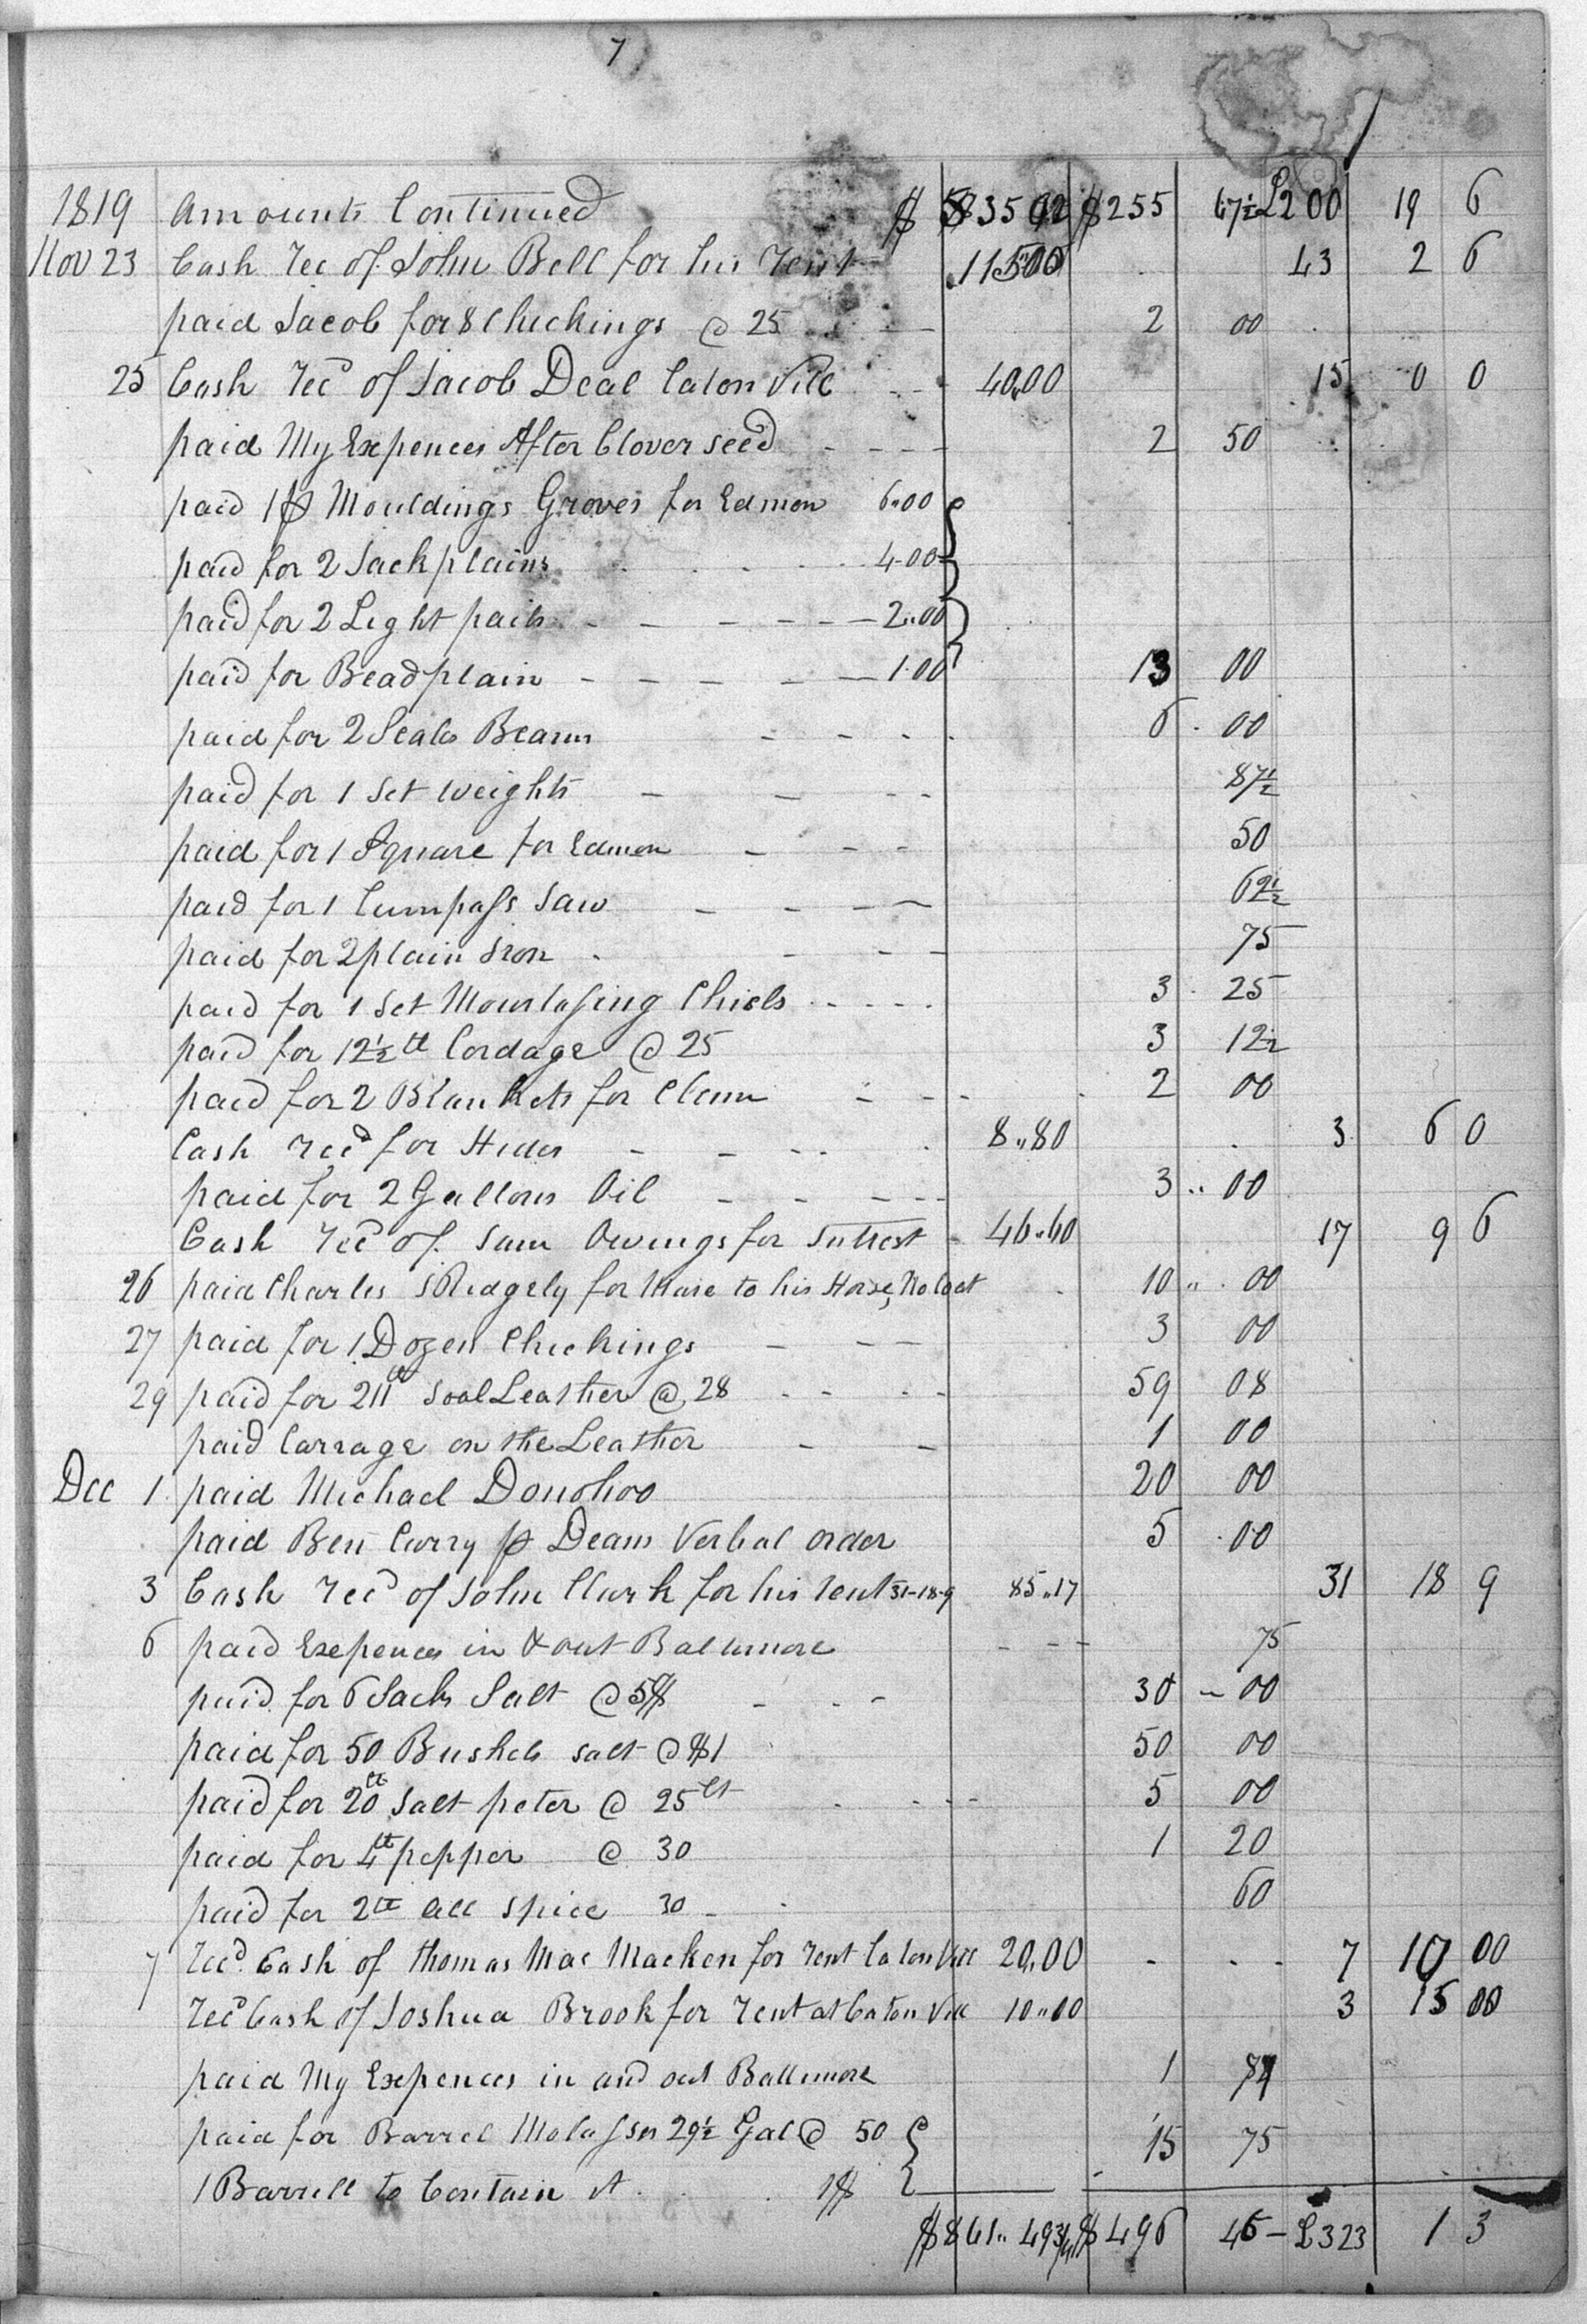 7
1819 Amounts Continued $ 535 92 $255 67½ £200 19 6
Nov 23 Cash Rec of John Bell for his Rent 115.00 43 2 6
paid Jacob for 8 Chickings @ 25 2 00
25 Cash Recd of Jacob Deal Caton Vill 40.00 15 0 0
paid My Expences After Clover seed 2 50
paid 1 p Mouldings Groves for Edmon 6.00
paid for 2 Jack plains 4.00
paid for 2 Light pails 2.00
paid for Bead plain 1.00 13 00
paid for 2 Scales Beams 6 00
paid for 1 Set weights 87½
paid for 1 Square for Edmon 50
paid for 1 Cumpass Saw 62½
paid for 2 plain Iron 75
paid for 1 Set Mourtasing Chisls 3 25
paid for 12½ lb Cordage @ 25 3 12½
paid for 2 Blankets for Clem 2 00
Cash Recd for Hides 8.80 3 6 0
paid for 2 Gallons Oil 3 00
Cash Recd of Sam Owings for Intrest 46.60 17 9 6
26 paid Charles S Ridgely for Mare to his Horse, No Coet 10 00
27 paid for 1 Dozen Chickings 3 00
29 paid for 211 lb Soal Leather @ 28 59 08
paid Carrage on the Leather 1 00
Dec 1 paid Michael Donohoo 20 00
paid Ben Curry p Deams Verbal order 5 00
3 Cash Recd of John Clark for his rent 31-18-9 85.17 31 18 9
6 paid Exepences in & out Baltimore 75
paid for 6 Sacks Salt @ 5$ 30 00
paid for 50 Bushels salt @ $1 50 00
paid for 20 lb Salt peter @ 25 Ct 5 00
paid for 4 lb pepper @ 30 1 20
paid for 2 lb All spice 30 60
7 Recd Cash of Thomas Mac Macken for rent Caton Vill 20.00 7 10 00
Recd Cash of Joshua Brook for rent at Caton Vill 10.00 3 15 00
paid My Exepences in and out Baltimore 1
paid for Barrel Molasses 29½ Gal @ 50 15 75
1 Barrell to Contain it 1$
$861.49¾ $496 45 £323 1 3